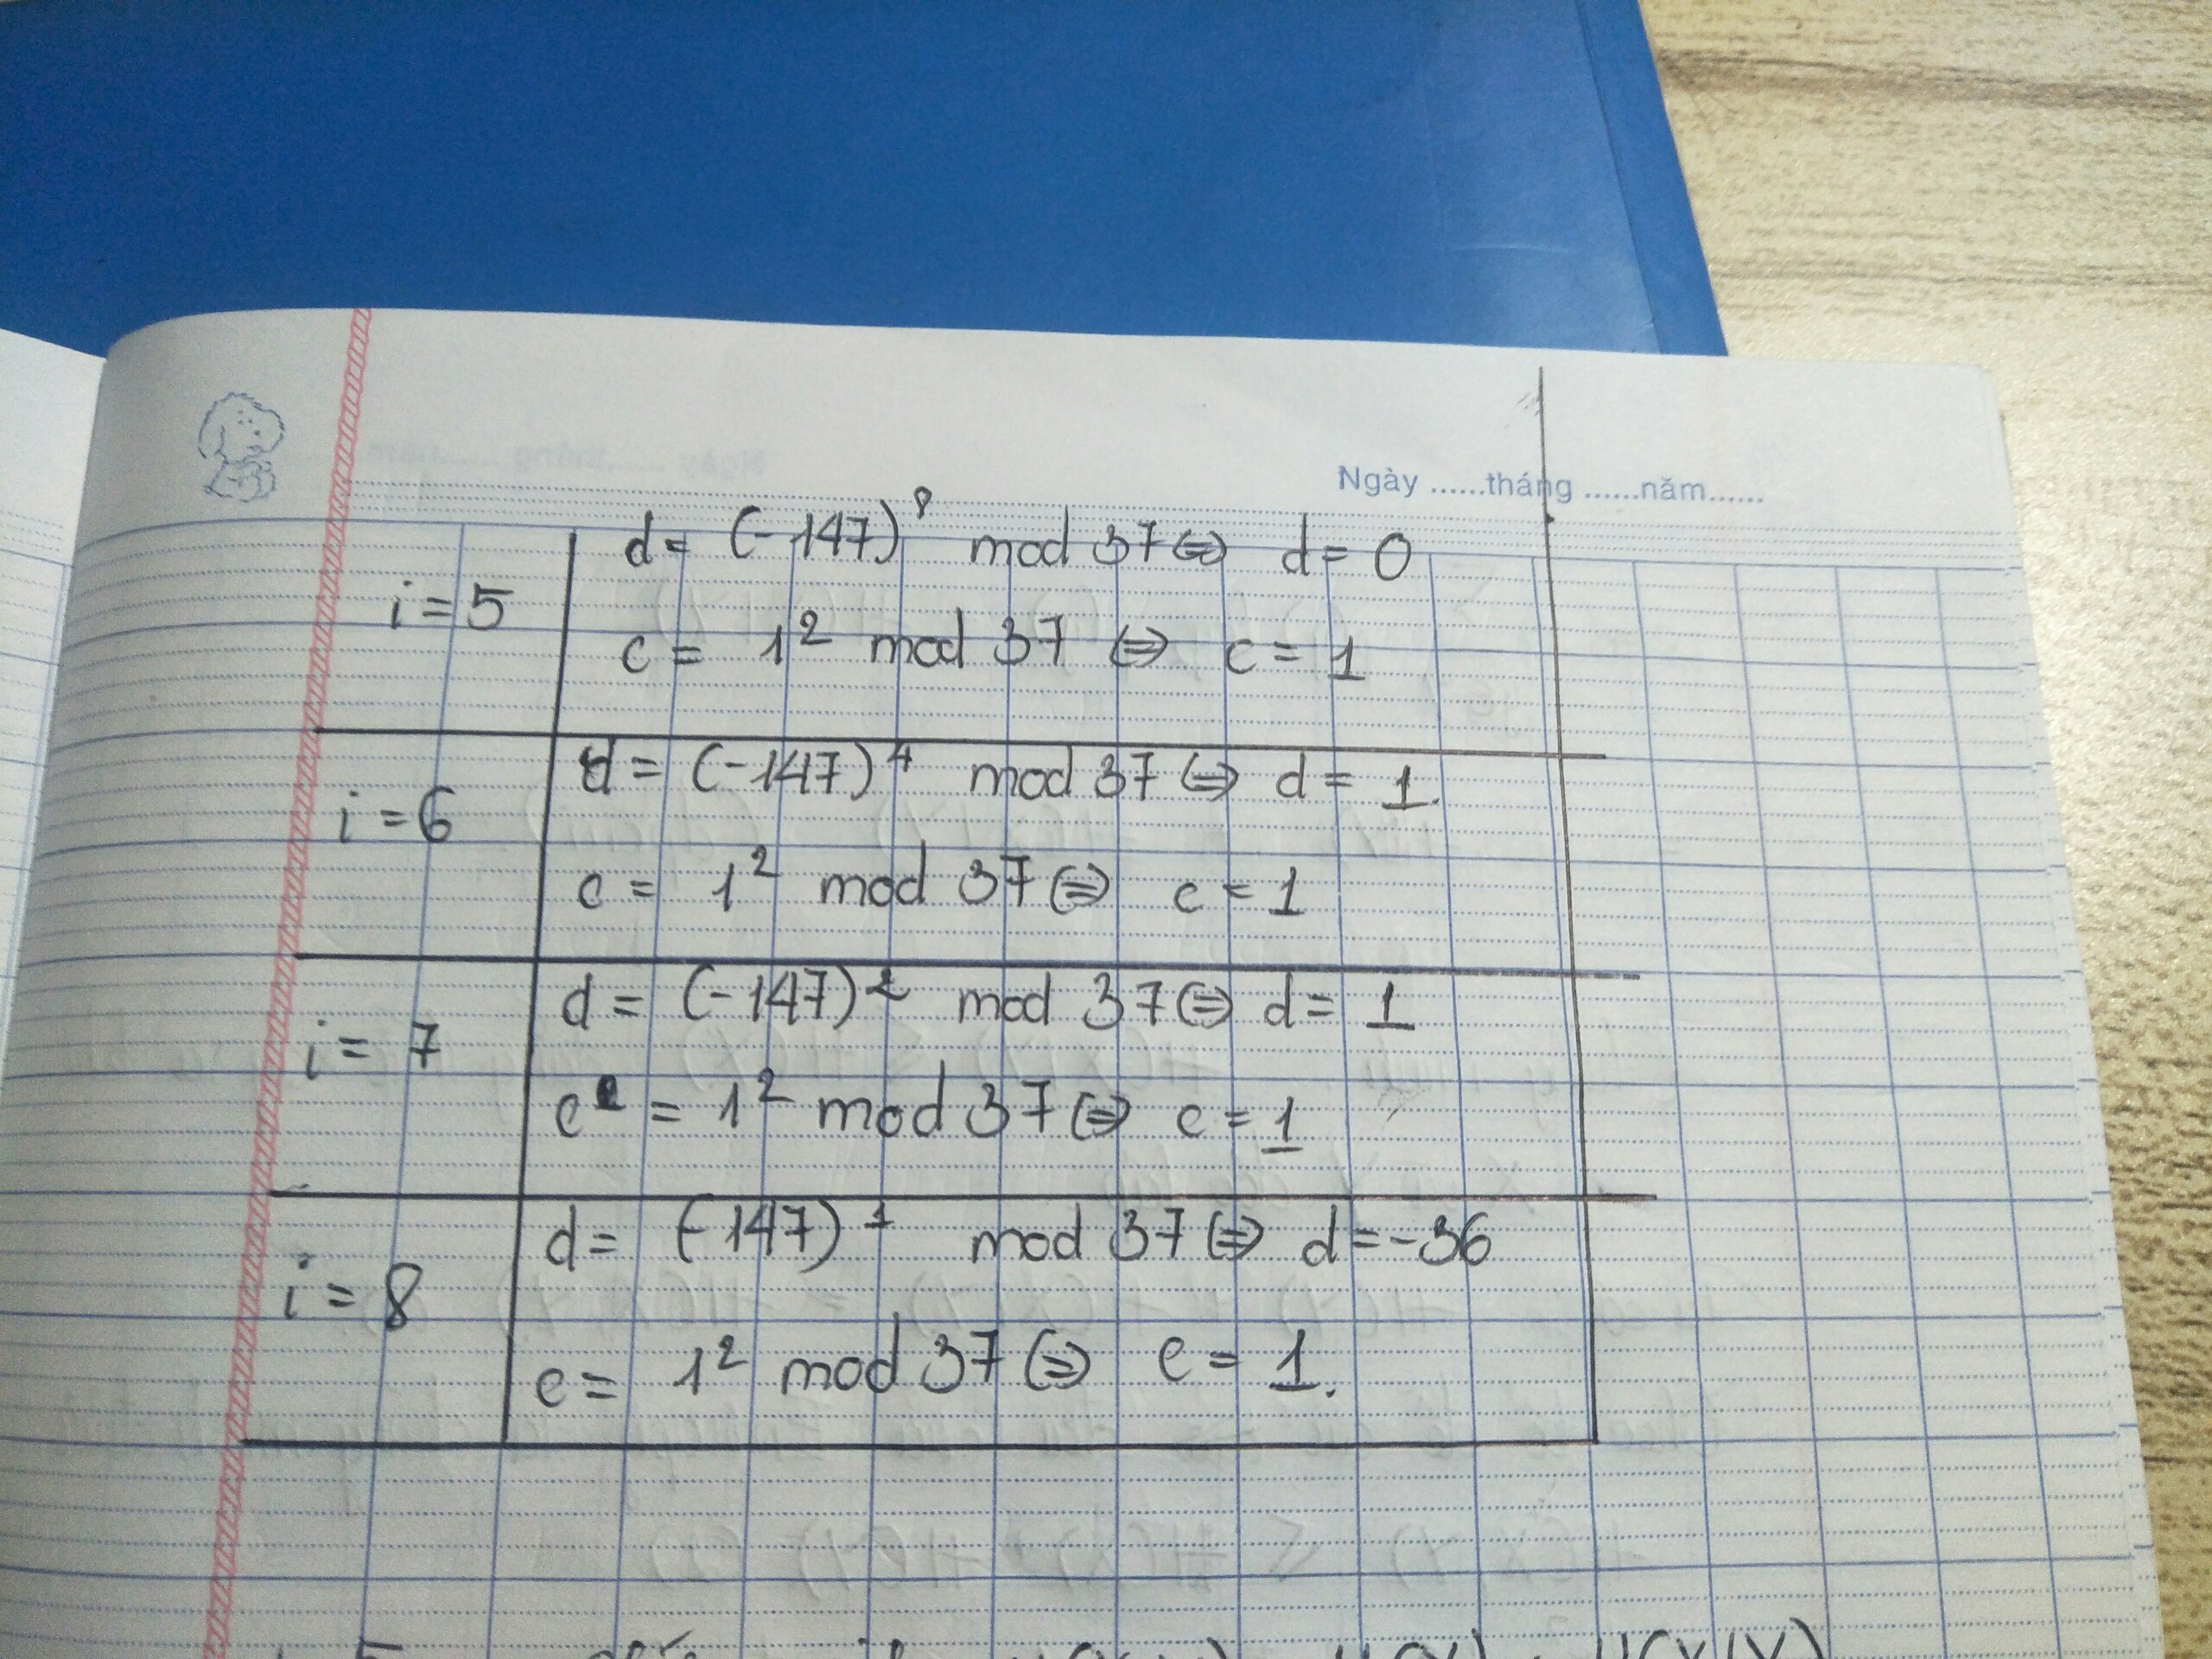 Ngày ......tháng ......năm......
d = (-147)⁸ mod 37 ⇔ d = 0
i = 5
c = 1² mod 37 ⇔ c = 1
d = (-147)⁴ mod 37 ⇔ d = 1.
i = 6
c = 1² mod 37 ⇔ c = 1
d = (-147)² mod 37 ⇔ d = 1
i = 7
c = 1² mod 37 ⇔ c = 1
d = (-147)¹ mod 37 ⇔ d = -36
i = 8
c = 1² mod 37 ⇔ c = 1.